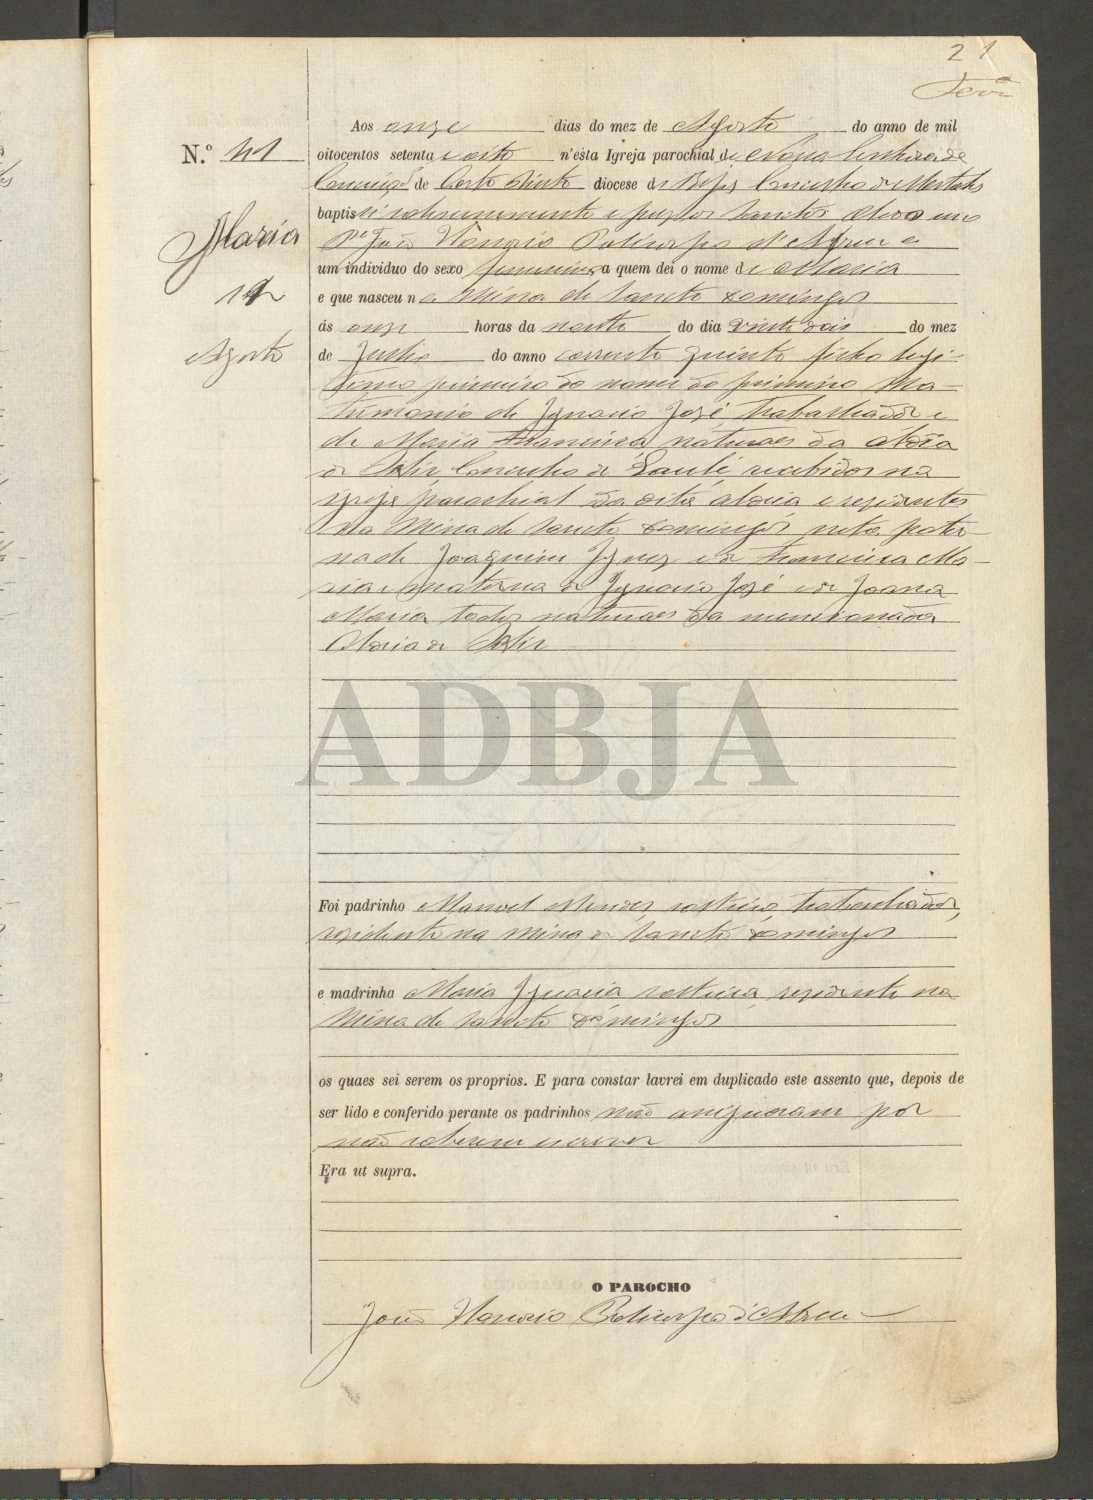 21
Aos onze dias do mez de Agosto do anno de mil
N.º 41
oitocentos setenta e oito n'esta Igreja parochial de Nossa Senhora da
Conceição de Corte Pinto diocese de Beja Concelho de Mertola
baptisei solemnemente e puz os Sanctos Oleos eu o
Maria
Pe João Honorio Policarpo d'Abreu a
um individuo do sexo feminino a quem dei o nome de Maria
e que nasceu na Mina de Sancto Domingos
11
Agosto
ás onze horas da noute do dia vinte dois do mez
de Julho do anno corrente quinto filho legi-
timo primeiro do nome do primeiro Ma-
trimonio de Ignacio José, trabalhador e
de Maria Francisca, naturaes da aldeia
de Salir, Concelho de Loulé, recebidos na
igreja parochial da dita aldeia e residentes
na Mina de Sancto Domingos, neta pater-
na de Joaquim Ignez e de Francisca Ma-
ria e materna de Ignacio José e de Joana
Maria todos naturaes da mencionada
Aldeia de Salir
ADBJA
Foi padrinho Manoel Mendes, solteiro, trabalhador,
residente na Mina de Sancto Domingos
e madrinha Maria Ignacia, solteira, residente na
Mina de Sancto Domingos
os quaes sei serem os proprios. E para constar lavrei em duplicado este assento que, depois de
ser lido e conferido perante os padrinhos não assignaram por
não saberem escrever
Era ut supra.
O PAROCHO
João Honorio Policarpo d'Abreu